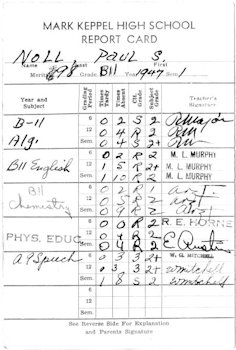 MARK KEPPEL HIGH SCHOOL
REPORT CARD
NOLL PAUL S.
Name Last First
Merits 98 Grade B11 Year 1947 Sem 1
Year and Subject Grading Period Times Tardy Times Absent Cit. Grade Subject Grade Teacher's Signature
B-11 6 0 2 S 2
Alg. 12 0 4 R 2
Sem. 0 4 S 2+
B11 English 6 0 2 R 2 M. L. MURPHY
12 1 R 2+ M. L. MURPHY
Sem. 1 10 R 2 M. L. MURPHY
B11 6 0 2 R 1
Chemistry 12 0 2
Sem. 0 9 R 2
PHYS. EDUC. 6 0 0 R 2 R. E. HORNE
12 0 R 2
Sem. 0 4 R 2 E. Austin
A9 Speech 6 0 3 3 2+ W. G. MITCHELL
12 0 3 3 2+ W Mitchell
Sem. 1 8 S 2 W Mitchell
6
12
Sem.
See Reverse Side For Explanation
and Parents Signature